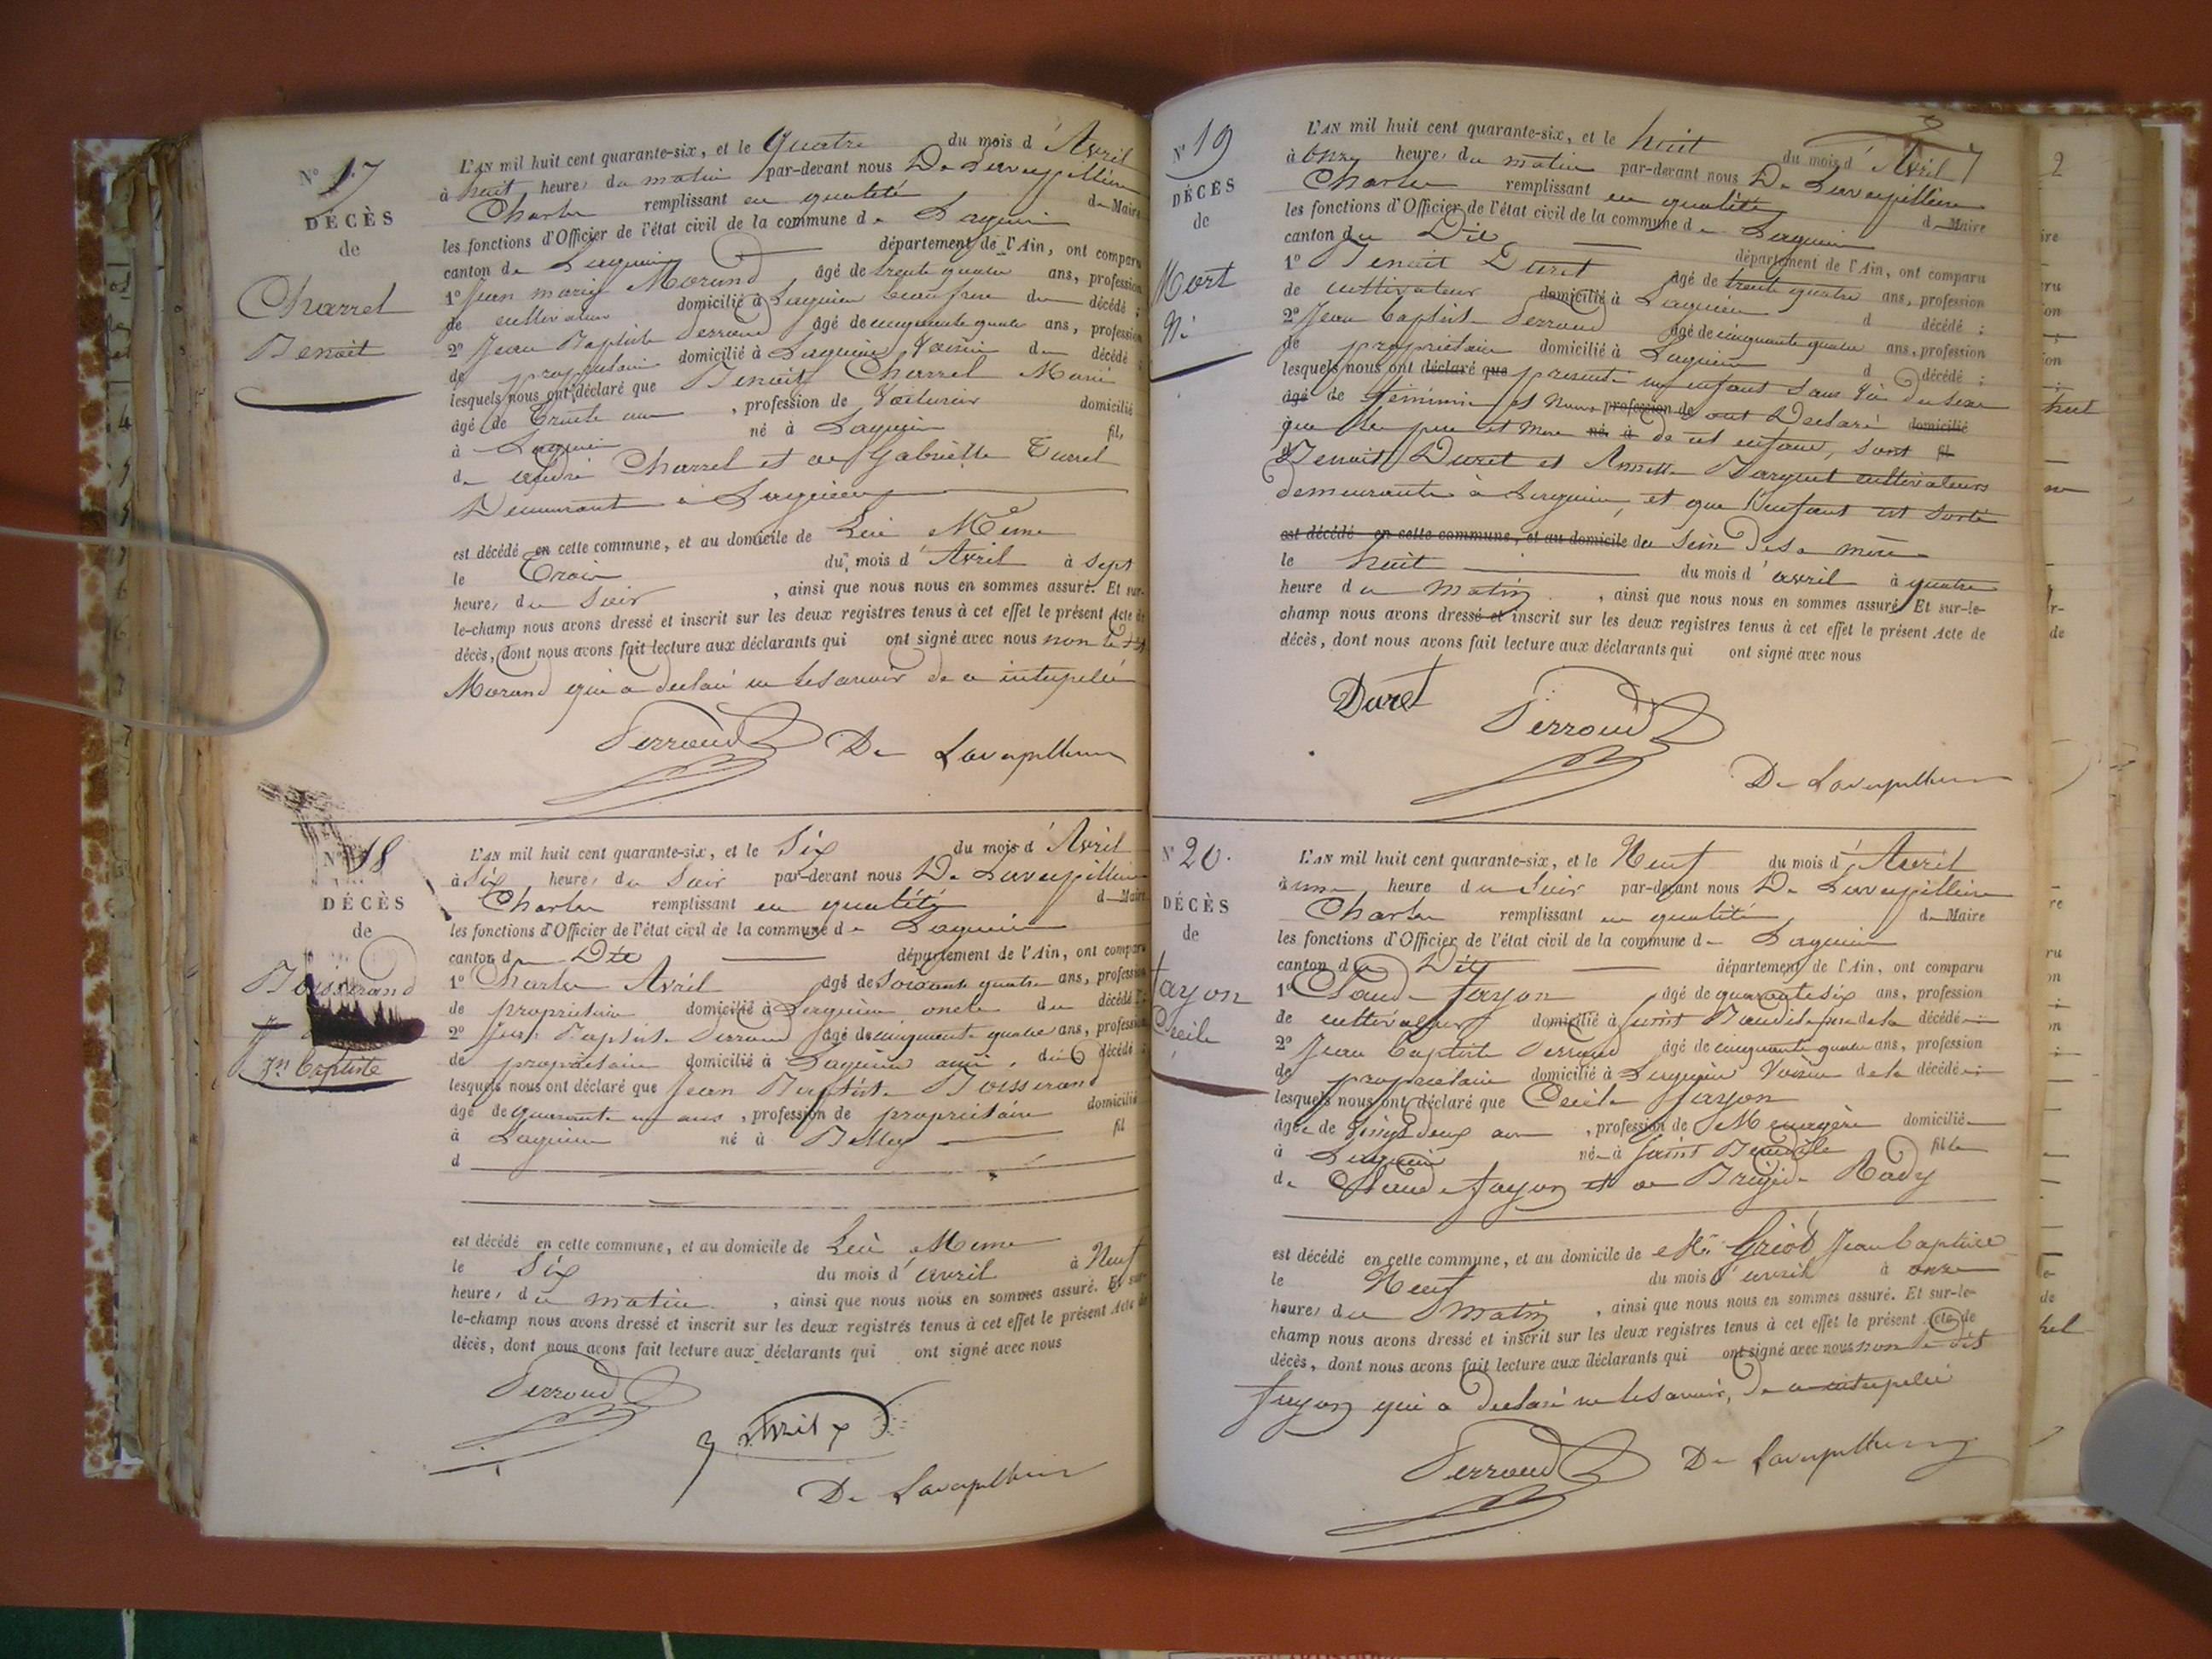 N° 17
DÉCÈS
de
Charrel
Benoit
L'AN mil huit cent quarante-six, et le quatre du mois d'Avril
à huit heures du matin par-devant nous De Lavaupillière
Charles remplissant en qualité de Maire
les fonctions d'Officier de l'état civil de la commune de Lagnieu
canton de Lagnieu département de l'Ain, ont comparu
1° Jean marie Morand âgé de trente quatre ans, profession
de cultivateur domicilié à Lagnieu beau frere du décédé ;
2° Jean Baptiste Perroud âgé de cinquante quatre ans, profession
de propriétaire domicilié à Lagnieu Voisin du décédé ;
lesquels nous ont déclaré que Benoit Charrel Marié
âgé de Trente ans, profession de Voiturier domicilié
à Lagnieu né à Lagnieu fils
de André Charrel et de Gabrielle Turrel
Demeurant à Lagnieu
est décédé en cette commune, et au domicile de Lui Même
le Trois du mois d'Avril à Sept
heures du Soir, ainsi que nous nous en sommes assuré. Et sur-
le-champ nous avons dressé et inscrit sur les deux registres tenus à cet effet le présent Acte de
décès, dont nous avons fait lecture aux déclarants qui ont signé avec nous non le dit
Morand qui a declaré ne le savoir de ce interpellé
Perroud De Lavaupillière
N° 18
DÉCÈS
de
Boisserand
Jn Baptiste
L'AN mil huit cent quarante-six, et le Six du mois d'Avril
à Six heures du Soir par-devant nous De Lavaupillière
Charles remplissant en qualité de Maire
les fonctions d'Officier de l'état civil de la commune de Lagnieu
canton du Dit département de l'Ain, ont comparu
1° Charles Avril âgé de Soixante quatre ans, profession
de propriétaire domicilié à Lagnieu oncle du décédé ;
2° Jean Baptiste Perroud âgé de cinquante quatre ans, profession
de propriétaire domicilié à Lagnieu ami du décédé ;
lesquels nous ont déclaré que Jean Baptiste Boisserand
âgé de quarante un ans, profession de propriétaire domicilié
à Lagnieu né à Belley fil
d
est décédé en cette commune, et au domicile de Lui Meme
le Six du mois d'avril à Neuf
heures du matin, ainsi que nous nous en sommes assuré. Et sur-
le-champ nous avons dressé et inscrit sur les deux registres tenus à cet effet le présent Acte de
décès, dont nous avons fait lecture aux déclarants qui ont signé avec nous
Perroud
Avril
De Lavaupillière
N° 19
DÉCÈS
de
Mort
Né
L'AN mil huit cent quarante-six, et le huit du mois d'Avril
à onze heures du matin par-devant nous De Lavaupillière
Charles remplissant en qualité de Maire
les fonctions d'Officier de l'état civil de la commune de Lagnieu
canton du Dit département de l'Ain, ont comparu
1° Benoit Duret âgé de trente quatre ans, profession
de cultivateur domicilié à Lagnieu d décédé ;
2° Jean Baptiste Perroud âgé de cinquante quatre ans, profession
de propriétaire domicilié à Lagnieu d décédé ;
lesquels nous ont déclaré que presenté un enfant sans Vie du sexe
âgé de féminin et Nous profession de ont Declaré domicilié
que le pere et Mere né à de cet enfant, sont fil
d Benoit Duret et Annette Barquet cultivateurs
demeurants à Lagnieu, et que l'enfant est sorti
est décédé en cette commune, et au domicile du Sein de sa mère
le huit du mois d'avril à quatre
heure du matin, ainsi que nous nous en sommes assuré. Et sur-le-
champ nous avons dressé et inscrit sur les deux registres tenus à cet effet le présent Acte de
décès, dont nous avons fait lecture aux déclarants qui ont signé avec nous
Duret Perroud
De Lavaupillière
N° 20.
DÉCÈS
de
Fayon
Cecile
L'AN mil huit cent quarante-six, et le Neuf du mois d'Avril
à une heure du Soir par-devant nous De Lavaupillière
Charles remplissant en qualité de Maire
les fonctions d'Officier de l'état civil de la commune de Lagnieu
canton du Dit département de l'Ain, ont comparu
1° Claude Fayon âgé de quarante six ans, profession
de cultivateur domicilié à Saint Baudile pere de la décédée ;
2° Jean Baptiste Perroud âgé de cinquante quatre ans, profession
de propriétaire domicilié à Lagnieu Voisin de la décédée ;
lesquels nous ont déclaré que Cecile Fayon
âgée de Vingt deux ans, profession de Menagère domiciliée
à Lagnieu née à Saint Baudile fille
de Claude Fayon et de Brigide Rady
est décédé en cette commune, et au domicile de Mr Griot Jean Baptiste
le Neuf du mois d'avril à onze
heures du Matin, ainsi que nous nous en sommes assuré. Et sur-le-
champ nous avons dressé et inscrit sur les deux registres tenus à cet effet le présent Acte de
décès, dont nous avons fait lecture aux déclarants qui ont signé avec nous non le dit
Fayon qui a declaré ne le savoir, de ce interpellé
Perroud De Lavaupillière